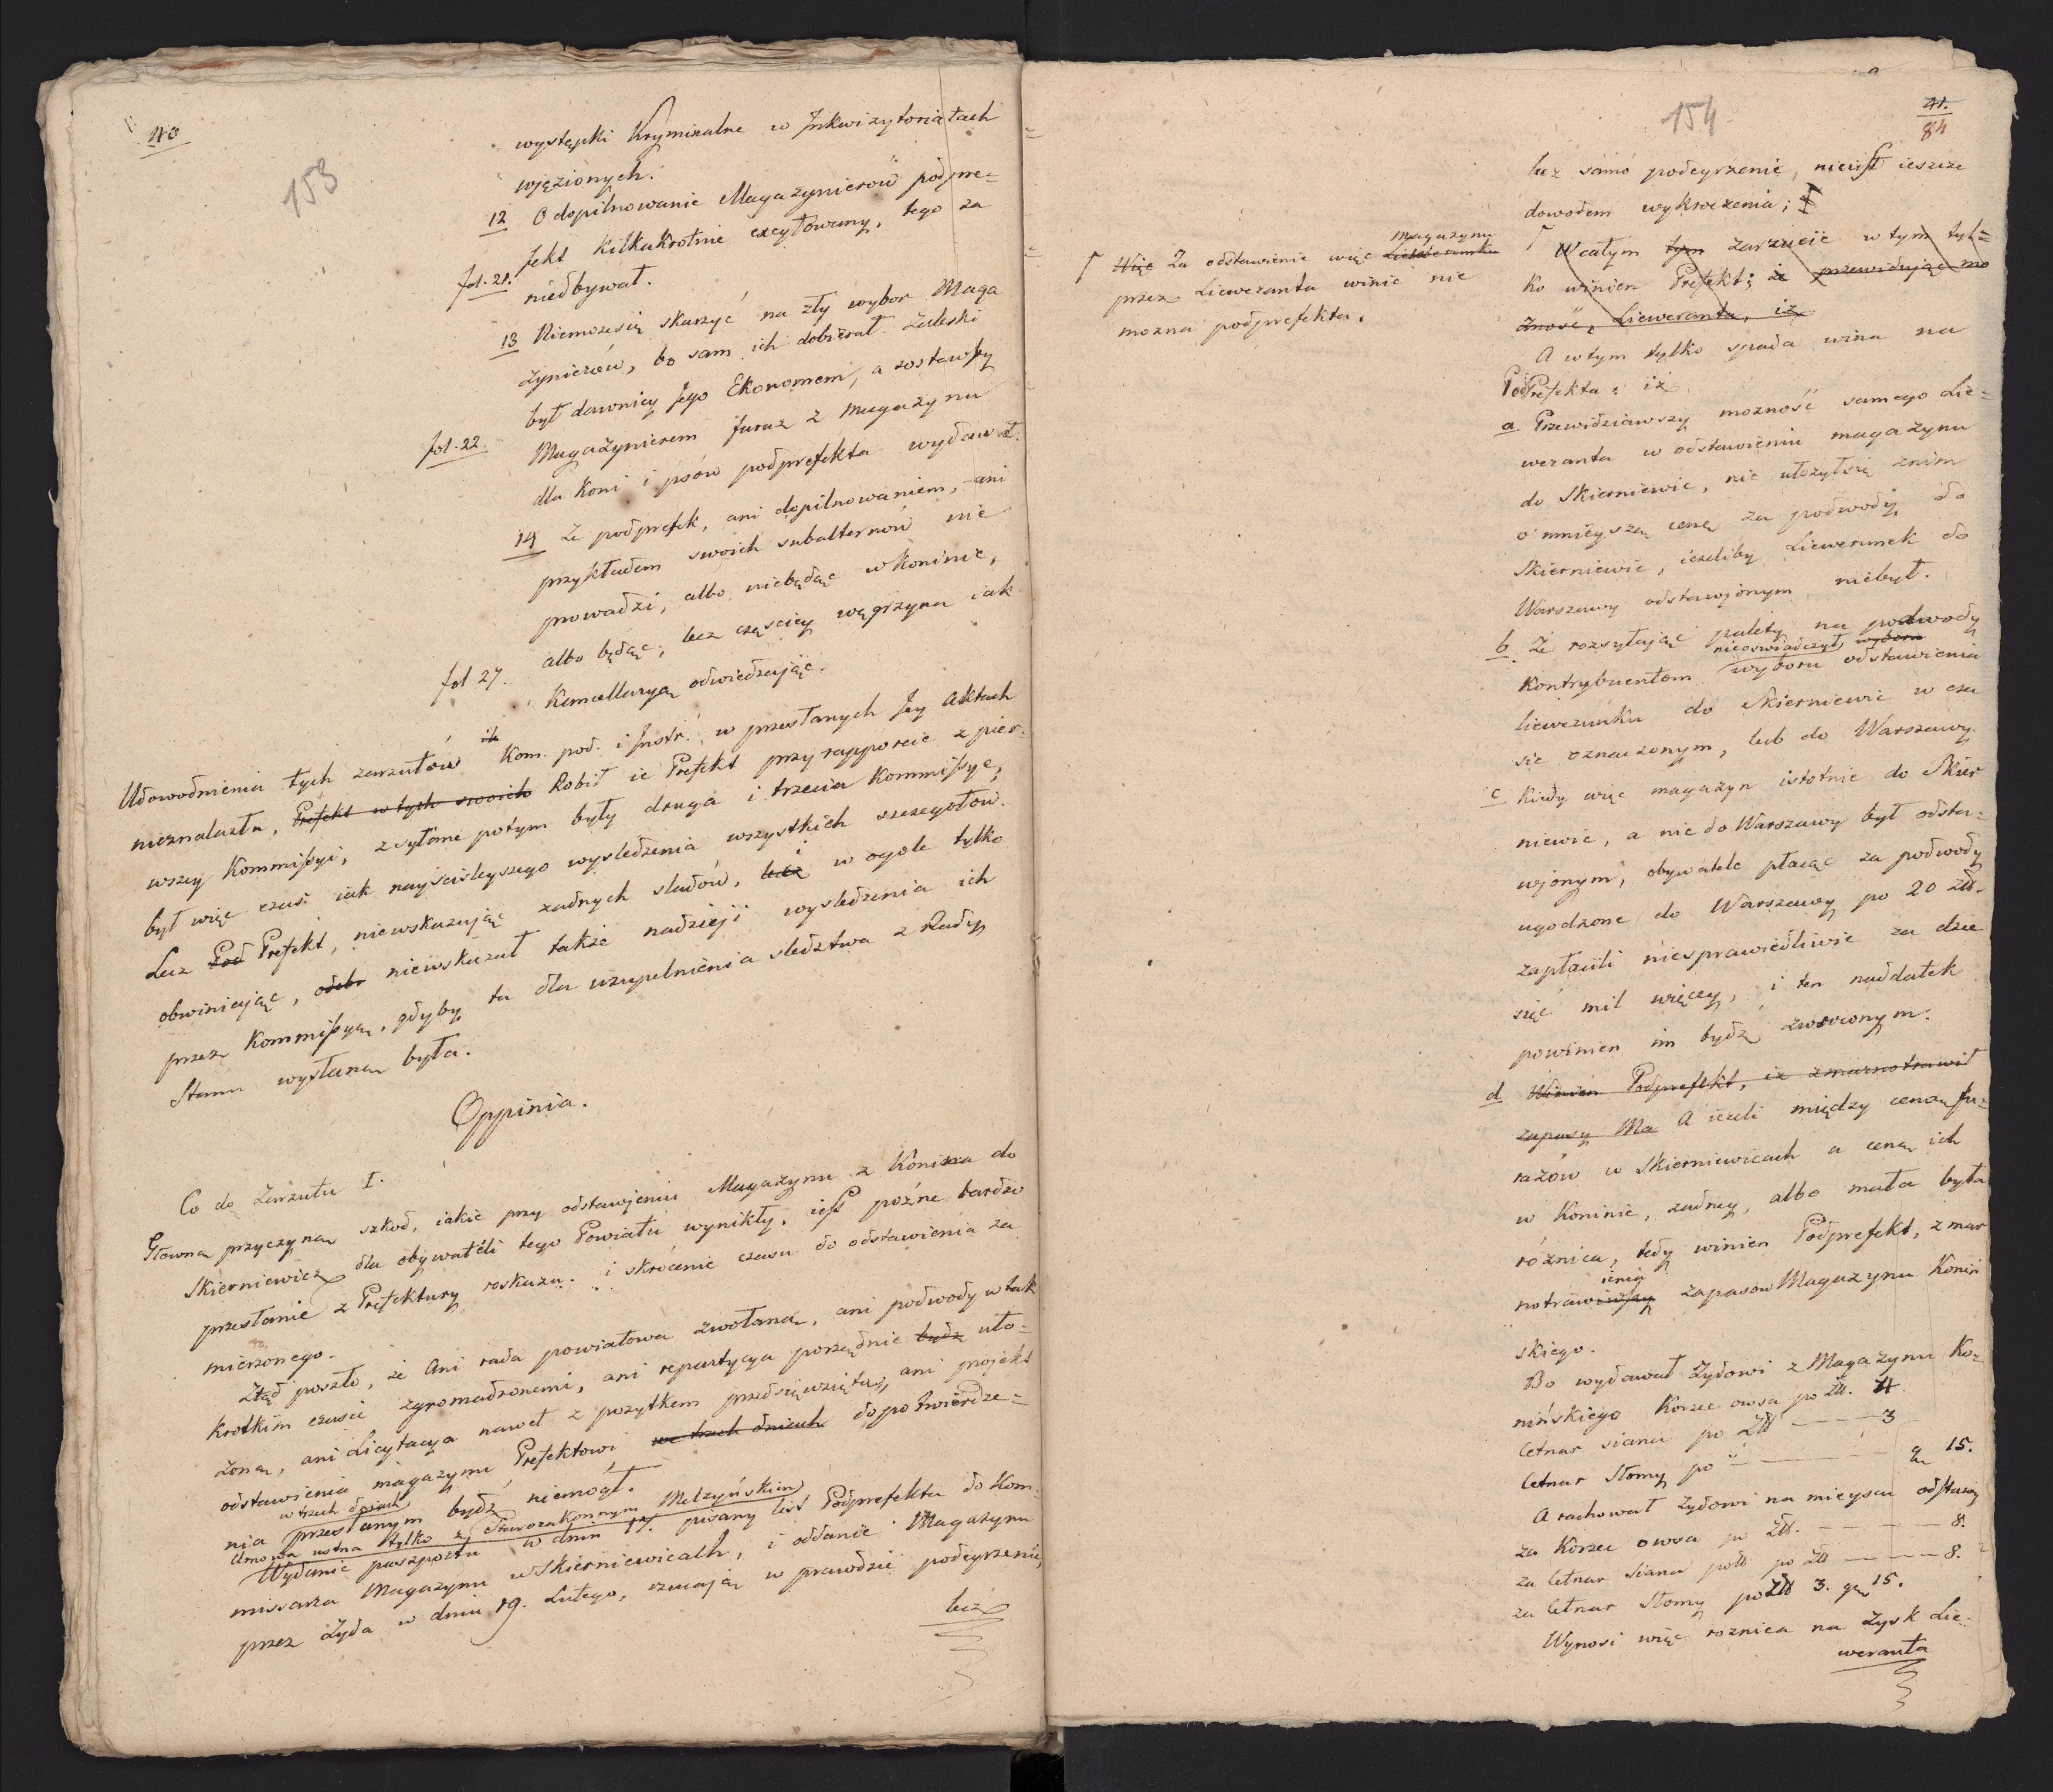 40
153
występki Kryminalne w Inkwizytoriatach
więzionych.
12 O dopilnowanie Magazynierow podpre=
fekt kilkakrotnie excytowany, tego za
fol. 21. niedbywał.
13 Niemozesię skarżyć na zły wybor Maga
zynierów, bo sam ich dobierał. Zaleski
był dawniey Jego Ekonomem, a zostawszy
fol. 22. Magazynierem furaz z magazynu
dla koni i psów podprefekta wydawał.
14 Że podprefek, ani dopilnowaniem, ani
przykładem swoich subalternów nie
prowadzi, albo niebędąc w koninie,
albo będąc, lecz częsciey węgrzyna iak
fol 27. Kancellaryą odwiedzaiąc.
Udowodnienia tych zarzutów Kom. pod. i Instr. w przesłanych Jey aktach
nieznalazła, Prefekt w tych swoich Robił ie Prefekt przy rapporcie z pier=
wszey Kommissyi, zsyłane potym były druga i trzecia Kommissye,
był więc czas iak nayscisleyszego wysledzenia wszystkich szczegołow.
Lecz Pod Prefekt, niewskazując żadnych sladów, lecz i w ogole tylko
obwiniając, niewskazał także nadzieji wysledzenia ich
przez Kommissyą, gdyby ta dla uzupełnienia sledztwa z Rady
Stanu wysłana była.
Oppinia.
Co do Zarzutu I.
Głowną przyczyną szkod, iakie przy odstawieniu Magazynu z Konina do
Skierniewicz dla obywateli tego Powiatu wynikły, iest poźne bardzo
przesłanie z Prefektury roskazu i skrócenie czasu do odstawienia za
mierzonego.
Ztąd poszło, że Ani rada powiatowa zwołaną, ani podwody w tak
krotkim czasie zgromadzonemi, ani repartycya porządnie bydz uło=
żoną, ani Licytacya nawet z pożytkem przedsięwziętą, ani projekt
odstawienia magazynu Prefektowi we trzech dniach do potwierdze=
w trzech dniach
nia przesłanym bydz niemogł.
Umowa ustna tylko z Starozakonnym Melzyńskim
Wydanie paszportu w dniu 17. pisany list Podprefekta do Kom=
missarza Magazynu w Skierniewicach, i oddanie Magazynu
przez Żyda w dniu 19. Lutego, wzmaią w prawdzie podeyrzenie,
lecz
154
41.
84
lecz samo podeyrzenie, nieiest ieszcze
dowodem wykroczenia;
Więc Za odstawienie więc magazynu Liewerunku
przez Liweranta winić nie
mozna podprefekta.
W całym tym zarzucie w tym tyl=
ko winien Prefekt; że przewidując mo
żność, Lieweranta, iż
A w tym tylko spada wina na
PodPrefekta: iż
a Przewidziawszy mozność samego Lie=
weranta w odstawieniu magazynu
do Skierniewic, nie ułożyłsię znim
o mnieyszą cenę za podwody do
Skierniewic, ieżeliby Liewerunek do
Warszawy odstawjonym niebył.
b. Że rozsyłając palety na podwody
nieoswiadczył wyboru
Kontrybuentom wyboru odstawienia
liewerunku do Skierniewic w cza
sie oznaczonym, lub do Warszawy.
c Kiedy więc magazyn istotnie do Skier
niewic, a nie do Warszawy był odsta=
wjonym, obywatele płacąc za podwody
ugodzone do Warszawy po 20 złł.
zapłacili niesprawiedliwie za dzie
sięć mil więcey, i ten naddatek
powinien im bydz zwroconym.
d Winien Podprefekt, iż zmarnotrawił
zapasy Ma A ieżeli między ceną fu=
rażów w Skierniewicach a ceną ich
w Koninie, żadney, albo mała była
róznica, tedy winien Podprefekt, zmar
ienia
notrawiwszy zapasow Magazynu Konin
skiego.
Bo wydawał Żydowi z Magazynu Ko=
nińskiego Korzec owsa po złł. 4
Cetnar siana po Złł — — 3
Cetnar Słomy po — — — g 15.
A rachował Żydowi na mieyscu odstawy
za Korzec owsa po Złł. — — — 8.
za Cetnar Siana po Złł — — — 8.
za Cetnar Słomy po Złł 3. g 15.
Wynosi więc roznica na zysk Lie=
weranta